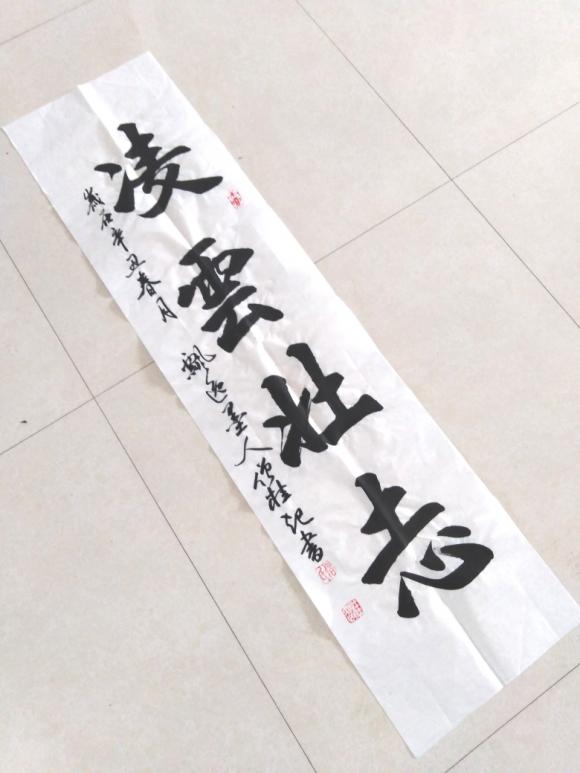 凌雲壯志
歲在辛丑春月
飘逸墨人 書